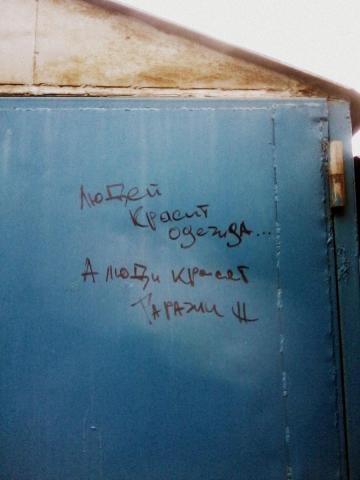 Людей
красит
одежда...
А люди красят
Гаражи